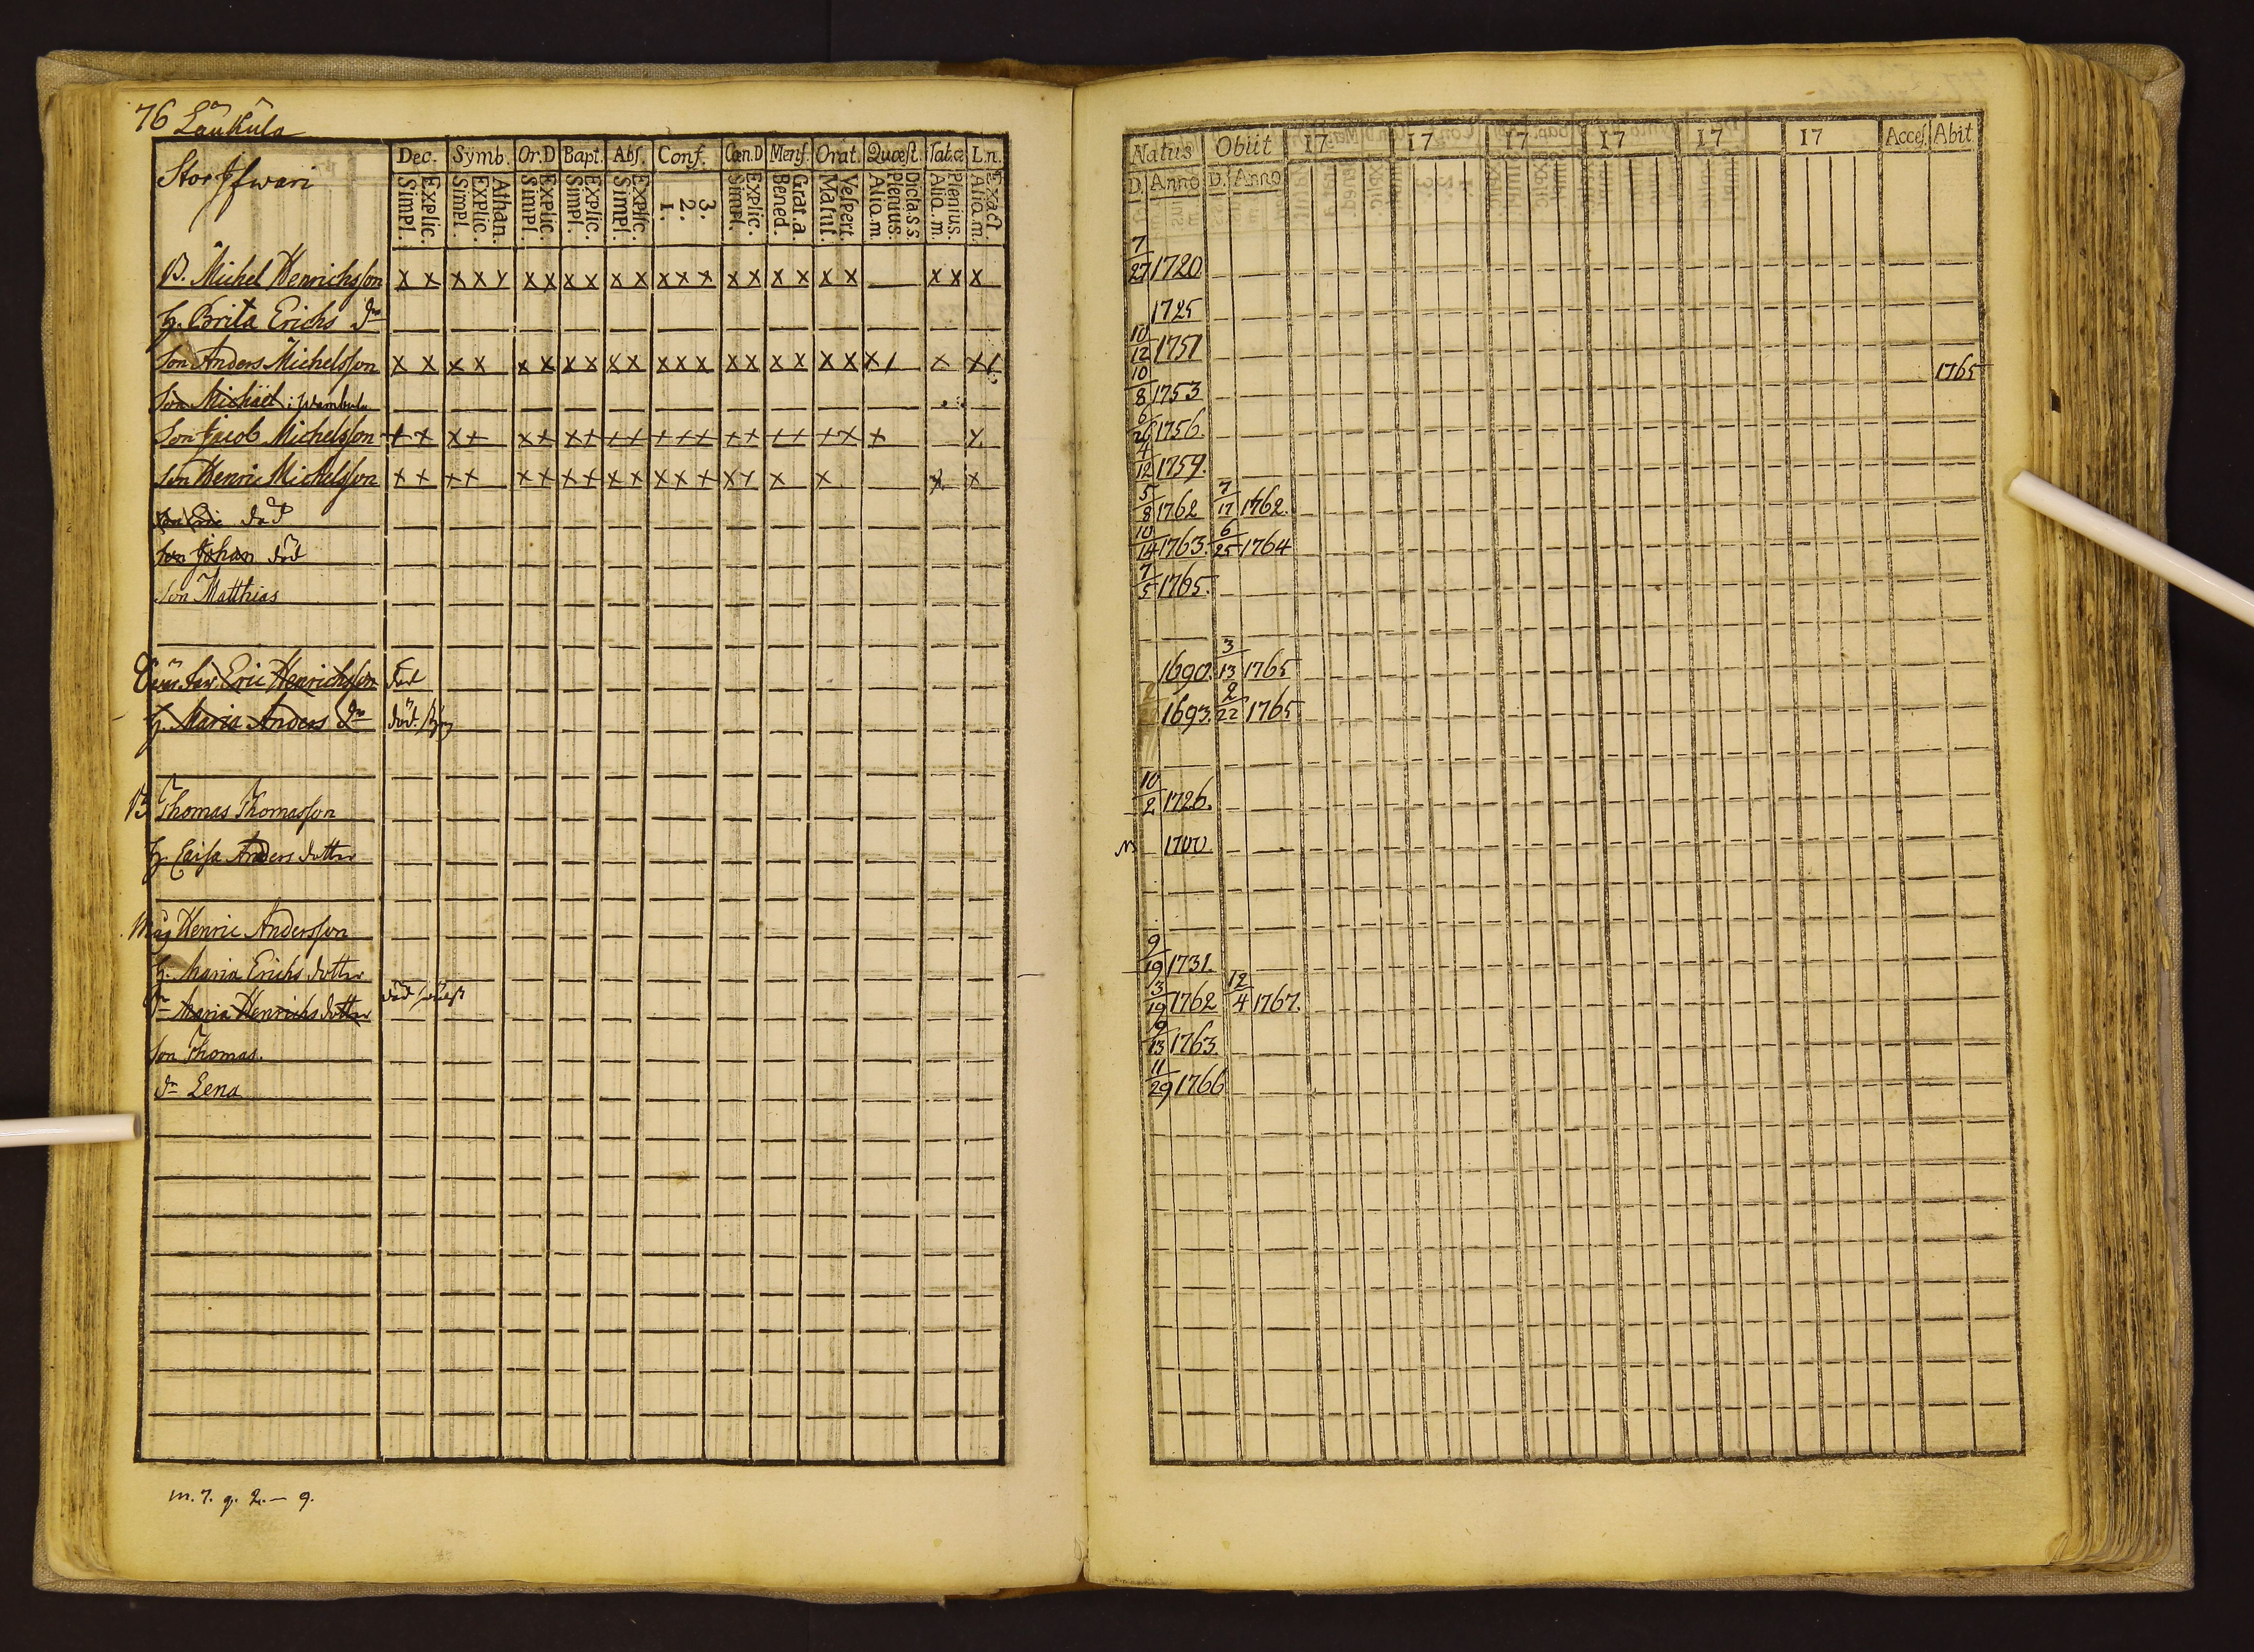 76 Laukula
Stor Jfwari
Dec. Symb. Or.D Bapt. Abs. Conf. Cœn.D Mens. Orat. Quæst. Tab.œ L.n.
Simpl. Explic. Simpl. Explic. Athan. Simpl. Explic. Simpl. Explic. Simpl. Explic. 1. 2. 3. Simpl. Explic. Bened. Grat.a. Matut. Vespert. Aliq.m. Plenius. Dicta.s.s. Aliq.m. Plenius. Aliq.m. Exact.
B. Michel Henrichsson x x x x x x x x x x x x x x x x x x x x x x x
H. Brita Erichs dr
Son Anders Michelsson x x x x x x x x x x x x x x x x x x x x x
Son Michäel i Wambula
Son Jacob Michelsson x x x x x x x x x x x x x x x x x x x x
Son Henric Michelsson x x x x x x x x x x x x x x x x x x x
Son Eric död
Son Johan död
Son Matthias
Eric Henrichsson död
H. Maria Anders dr död
B Thomas Thomasson
H. Caisa Anders dotter
Måg Henric Andersson
H. Maria Erichs dotter
dr Maria Henrichs dotter död
Son Thomas.
dr Lena
m. 7. q. 2. — 9.
Natus Obiit 17 17 17 17 17 17 Acces. Abit
D. Anno D. Anno
7/27 1720
1725
10/12 1751
10/8 1753 1765
6/26 1756.
4/12 1759.
5/8 1762 7/17 1762.
10/14 1763. 6/25 1764
7/5 1765.
1690. 3/13 1765
1693. 2/22 1765
10/2 1726.
1700
9/19 1731.
3/19 1762 12/4 1767.
9/13 1763.
11/29 1766